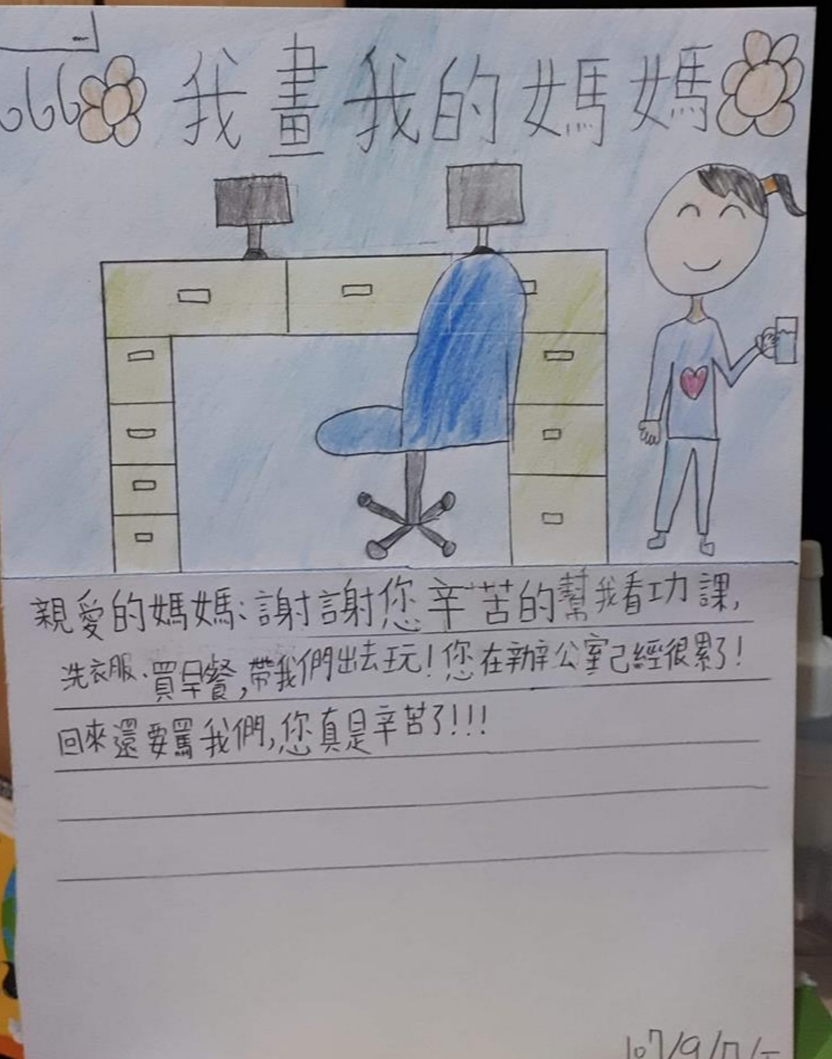 666 我畫我的媽媽
親愛的媽媽:謝謝您辛苦的幫我看功課,
洗衣服、買早餐,帶我們出去玩!您在辦公室己經很累了!
回來還要罵我們,您真是辛苦了!!!
107/9/7/